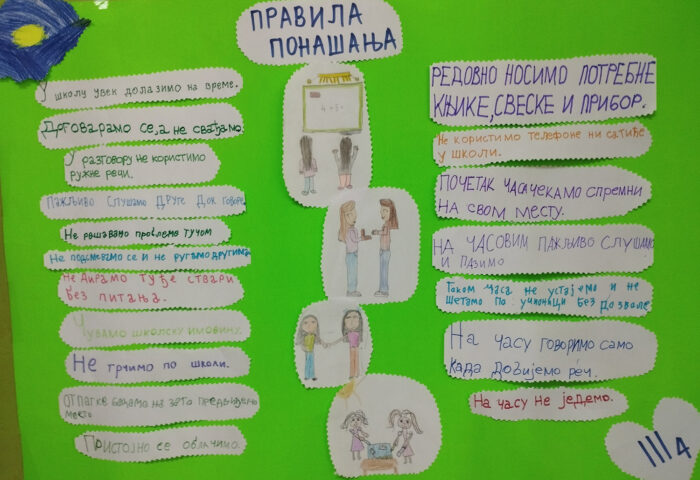 ПРАВИЛА
ПОНАШАЊА
У
школу увек долазимо на време.
Договарамо се, а не свађамо.
У разговору не користимо
ружне речи.
Пажљиво слушамо друге док говоре
Не решавамо проблеме тучом
Не подсмевамо се и не ругамо другима
Не дирамо туђе ствари
без питања.
Чувамо школску имовину.
Не трчимо по школи.
Отпатке бацамо на зато предвиђено
место
Пристојно се облачимо.
4+5=
РЕДОВНО НОСИМО ПОТРЕБНЕ
КЊИКЕ, СВЕСКЕ И ПРИБОР.
Не користимо телефоне ни сатиће
у школи.
ПОЧЕТАК ЧАСА ЧЕКАМО СПРЕМНИ
НА СВОМ МЕСТУ.
НА ЧАСОВИМ ПАЖЉИВО СЛУШАМО
И ПАЗИМО
Током часа не устајемо и не
шетамо по учионици без дозволе
На часу говоримо само
када добијемо реч.
На часу не једемо.
III 4